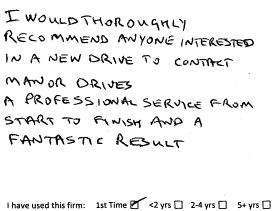 I WOULD THOROUGHLY
RECOMMEND ANYONE INTERESTED
IN A NEW DRIVE TO CONTACT
MANOR DRIVES
A PROFESSIONAL SERVICE FROM
START TO FINISH AND A
FANTASTIC RESULT
I have used this firm: 1st Time ☑ <2 yrs ☐ 2-4 yrs ☐ 5+ yrs ☐